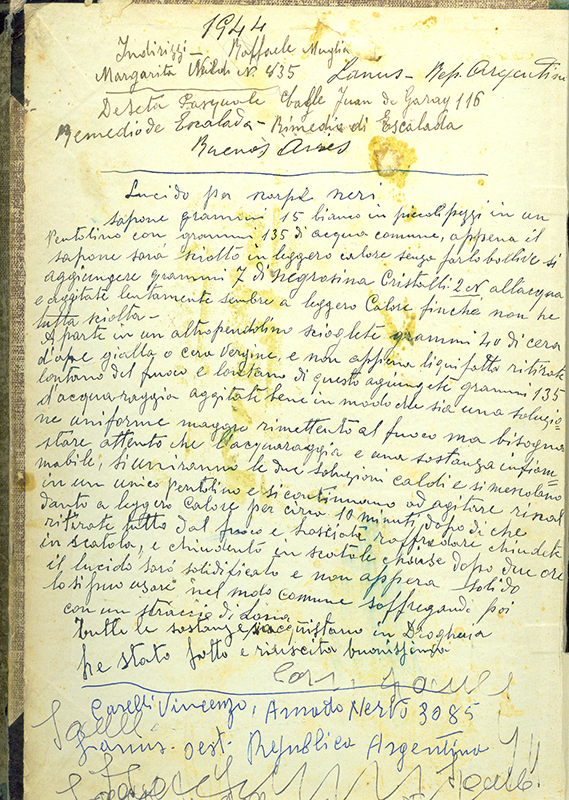 1944
Indirizzi - Raffaele Muglia
Margarita N. 835 Lanus - Rep. Argentina
De Seta Pasquale Calle Juan de Garay 116
Remedio de Escalada - Rimedio di Escalada
Buenos Aires
Lucido per scarpe neri
sapone grammi 15 bianco in piccoli pezzi in un
Pentolino con grammi 135 di acqua comune, appena il
sapone sarà sciolto in leggero calore senza farlo bollire si
aggiungere grammi 7 di Negrosina Cristalli 2 N all'acqua
e aggitate lentamente sembre a leggero Calore finche non he
tutta sciolta -
A parte in un altro pendolino scioglete grammi 40 di cera
d'ape gialla o cera Vergine, e non appena liquifatta ritirate
lontano del fuoco e lontano di questo agiungete grammi 135
d'acquaraggia aggitate bene in modo che sia una soluzio
ne uniforme maggie rimettento al fuoco ma bisogna
stare attento che l'acquaraggia e una sostanza infiam=
mabile, si uniranno le due soluzioni caldi e si mescolano
in un unico pentolino e si continuano ad agitare riscal
danto a leggero Calore per circa 10 minuti, dopo di che
ritirate tutto dal fuoco e lasciate raffredare chiudete
in scatola, e chiudento in scatole chiuse dopo due ore
il lucido sarà solidificato e non appena solido
lo si può usare nel modo comune soffregando poi
con un straccio di Lana
Tutte le sostanze si acquistano in Drogheria
he stato fatto e riuscita buonissima
Carelli Vincenzo, Amado Nervo 3085
Lanus - oest - Republica Argentina